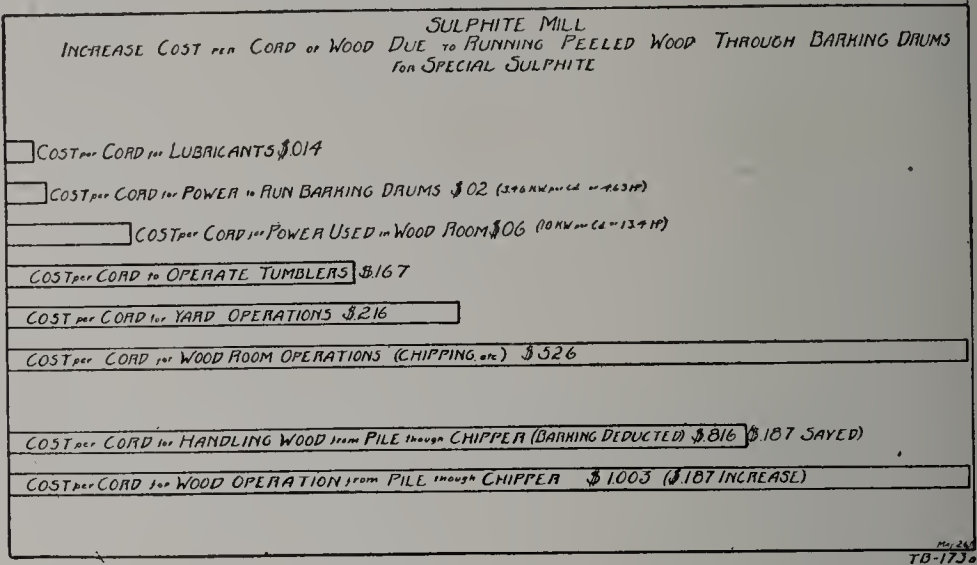 SULPHITE MILL
INCREASE COST PER CORD OF WOOD DUE TO RUNNING PEELED WOOD THROUGH BARKING DRUMS
FOR SPECIAL SULPHITE
COST per CORD for LUBRICANTS $.014
COST per CORD for POWER to RUN BARKING DRUMS $02 (3.46 KW per Cd or 4.63 HP)
COST per CORD for POWER USED in WOOD ROOM $06 (10 KW per Cd or 13.4 HP)
COST per CORD to OPERATE TUMBLERS $.167
COST per CORD for YARD OPERATIONS $.216
COST per CORD for WOOD ROOM OPERATIONS (CHIPPING, etc) $526
COST per CORD for HANDLING WOOD from PILE though CHIPPER (BARKING DEDUCTED) $.816 ($.187 SAVED)
COST per CORD for WOOD OPERATION from PILE though CHIPPER $1.003 ($.187 INCREASE)
TB-173a